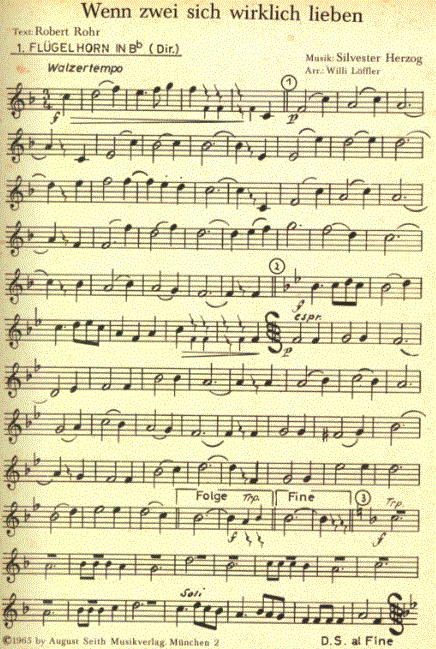 Wenn zwei sich wirklich lieben
Text: Robert Rohr
1. FLÜGELHORN IN Bb (Dir.)
Musik: Silvester Herzog
Arr.: Willi Löffler
Walzertempo
1
3
4
f
p
2
f
espr.
p
Folge
Trp.
Fine
3
Trp.
f
f
Soli
©1965 by August Seith Musikverlag, München 2
D.S. al Fine